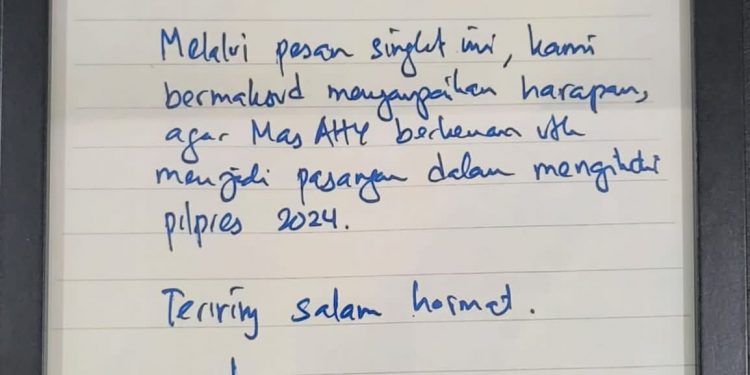 Melalui pesan singkat ini, kami
bermaksud menyampaikan harapan,
agar Mas AHY berkenan utk
menjadi pasangan dalam mengikuti
pilpres 2024.
Teriring salam hormat.